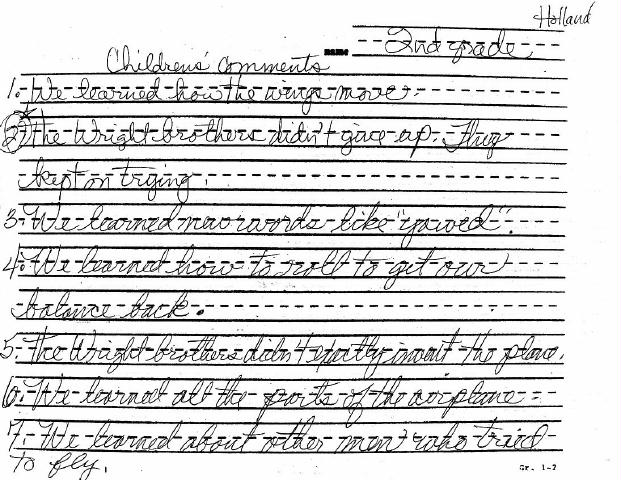 Holland
name 2nd grade
Childrens' comments
1. We learned how the wings move.
2. The Wright brothers didn't give up. They
kept on trying.
3. We learned new words like "yawed".
4. We learned how to roll to get our
balance back.
5. The Wright brothers didn't exactly invent the plane.
6. We learned all the parts of the airplane.
7. We learned about other men who tried
to fly.
Gr. 1-2